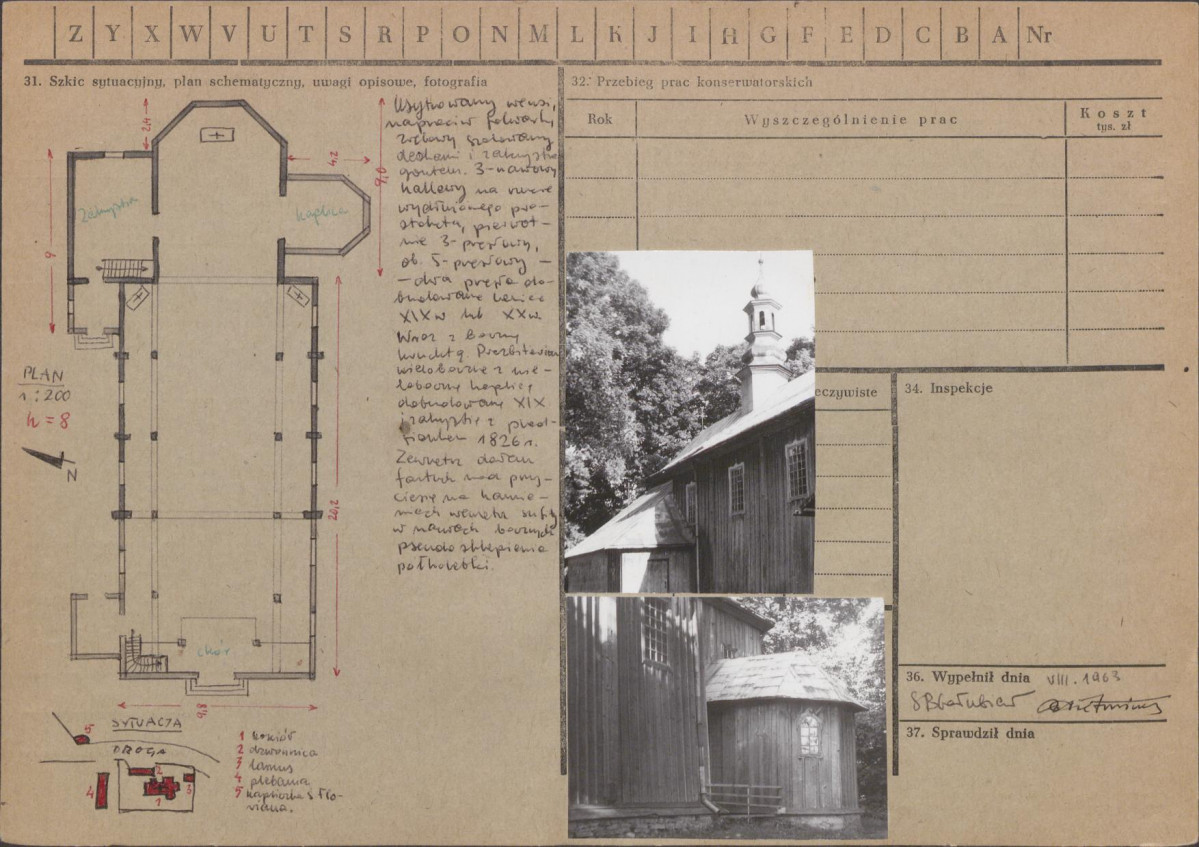 Z Y X W V U T S R P O N M L K J I H G F E D C B A Nr
31. Szkic sytuacyjny, plan schematyczny, uwagi opisowe, fotografia
2,4
4,2
9,0
9
zakrystia
kaplica
PLAN
1:200
h = 8
N
20,2
chór
9,8
Usytuowany we wsi,
naprzeciw folwarku,
zrębowy szalowany
deskami i zakrystia
gontem. 3-nawowy
hallowy na rzucie
wydłużonego pro-
stokąta, pierwot-
nie 3-przęsłowy,
ob. 5-przęsłowy –
– dwa przęsła do-
budowane
XIX w lub XXw.
Wraz z boczną
kruchtą. Prezbiterium
wieloboczne z wie-
loboczną kaplicą
dobudowaną XIX
i zakrystią z przed-
sionkiem 1826 r.
Zewnątrz
fartuch nad przy-
ciesią na kamie-
niach wewnątrz sufity
w nawach bocznych
pseudosklepienia
półkolebki.
SYTUACJA
DROGA
5
4
2
3
1
1 kościół
2 dzwonnica
3 lamus
4 plebania
5 kapliczka Ś Flo-
riana.
32. Przebieg prac konserwatorskich
Rok
Wyszczególnienie prac
Koszt
tys. zł
eczywiste
34. Inspekcje
36. Wypełnił dnia VIII. 1963
37. Sprawdził dnia